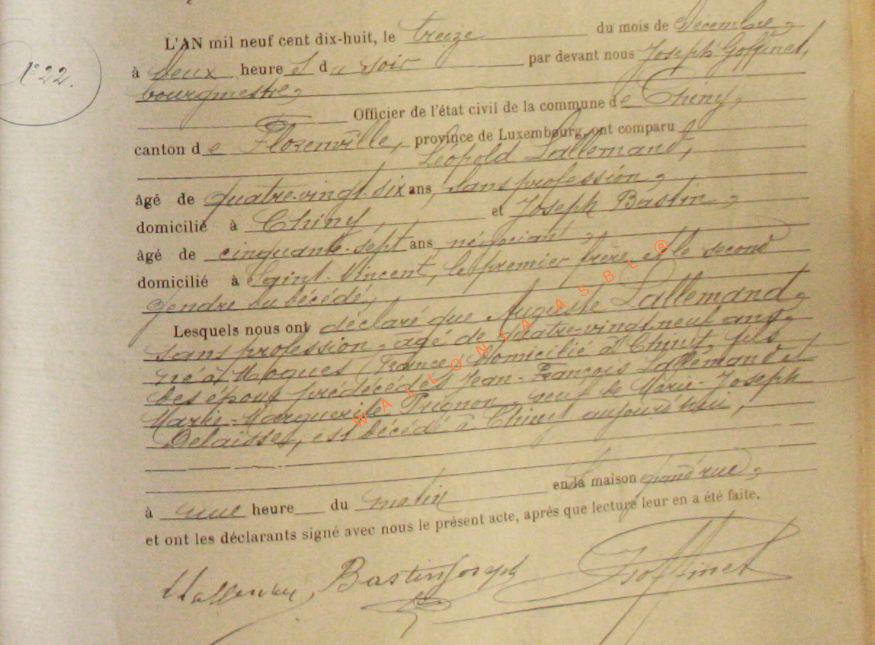 N° 22.
L'AN mil neuf cent dix-huit, le treize du mois de Décembre,
à deux heure s du soir par devant nous Joseph Goffinet,
bourgmestre,
Officier de l'état civil de la commune de Chiny,
canton de Florenville, province de Luxembourg, ont comparu
Léopold Lallemand,
âgé de quatre-vingt-six ans, sans profession,
domicilié à Chiny, et Joseph Bastin,
âgé de cinquante-sept ans, négociant,
domicilié à Saint-Vincent, le premier frère et le second
gendre du décédé,
Lesquels nous ont déclaré que Auguste Lallemand,
sans profession, âgé de quatre-vingt-neuf ans,
né à Mogues (France) domicilié à Chiny, fils
des époux prédécédés Jean-François Lallemand et
Marie-Marguerite Prignon, veuf de Marie-Joseph
Delaisse, est décédé à Chiny aujourd'hui,
à une heure du matin en la maison grand'rue,
et ont les déclarants signé avec nous le présent acte, après que lecture leur en a été faite.
Lallemand Bastin Joseph J Goffinet
WALLONIA ASBL ©